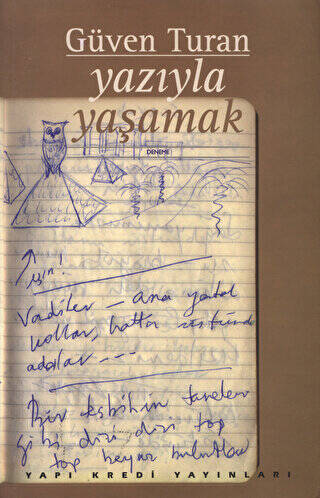 Güven Turan
yazıyla
yaşamak
DENEME
için!
Vadiler – ana yatal
kollar, hatta üstünde
adalar ---
Bir tesbihin taneleri
gibi dizi dizi top
top beyaz bulutlar
YAPI KREDİ YAYINLARI